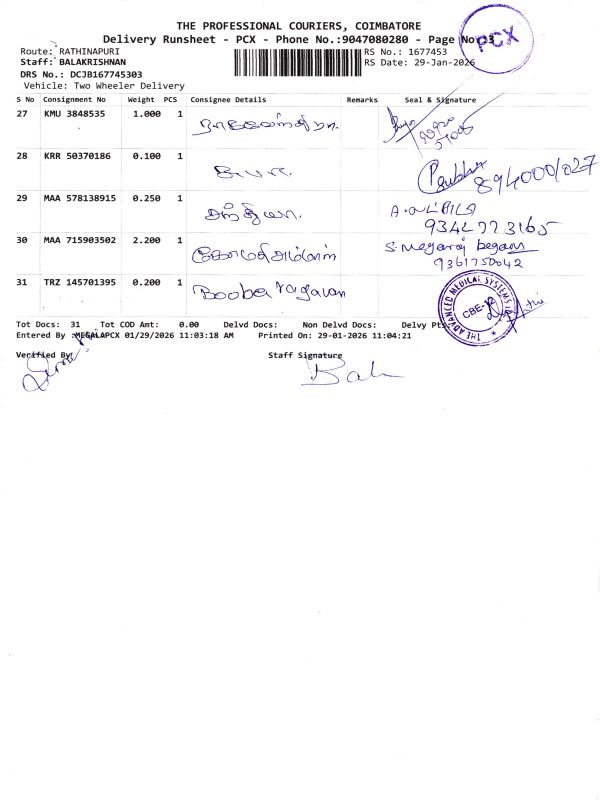 THE PROFESSIONAL COURIERS, COIMBATORE
Delivery Runsheet - PCX - Phone No.:9047080280 - Page No
PCX
Route: RATHINAPURI
RS No.: 1677453
Staff: BALAKRISHNAN
RS Date: 29-Jan-2026
DRS No.: DCJB167745303
Vehicle: Two Wheeler Delivery
S No Consignment No Weight PCS Consignee Details Remarks Seal & Signature
27 KMU 3848535 1.000 1
28 KRR 50370186 0.100 1
29 MAA 578138915 0.250 1
9342773165
30 MAA 715903502 2.200 1 S. Megaraj begam
9361750042
31 TRZ 145701395 0.200 1 Booba ragavan
THE ADVANCED MEDICAL SYSTEMS
CBE-12
Tot Docs: 31 Tot COD Amt: 0.00 Delvd Docs: Non Delvd Docs: Delvy Pts
Entered By :MEGALAPCX 01/29/2026 11:03:18 AM Printed On: 29-01-2026 11:04:21
Verified By Staff Signature
Bala